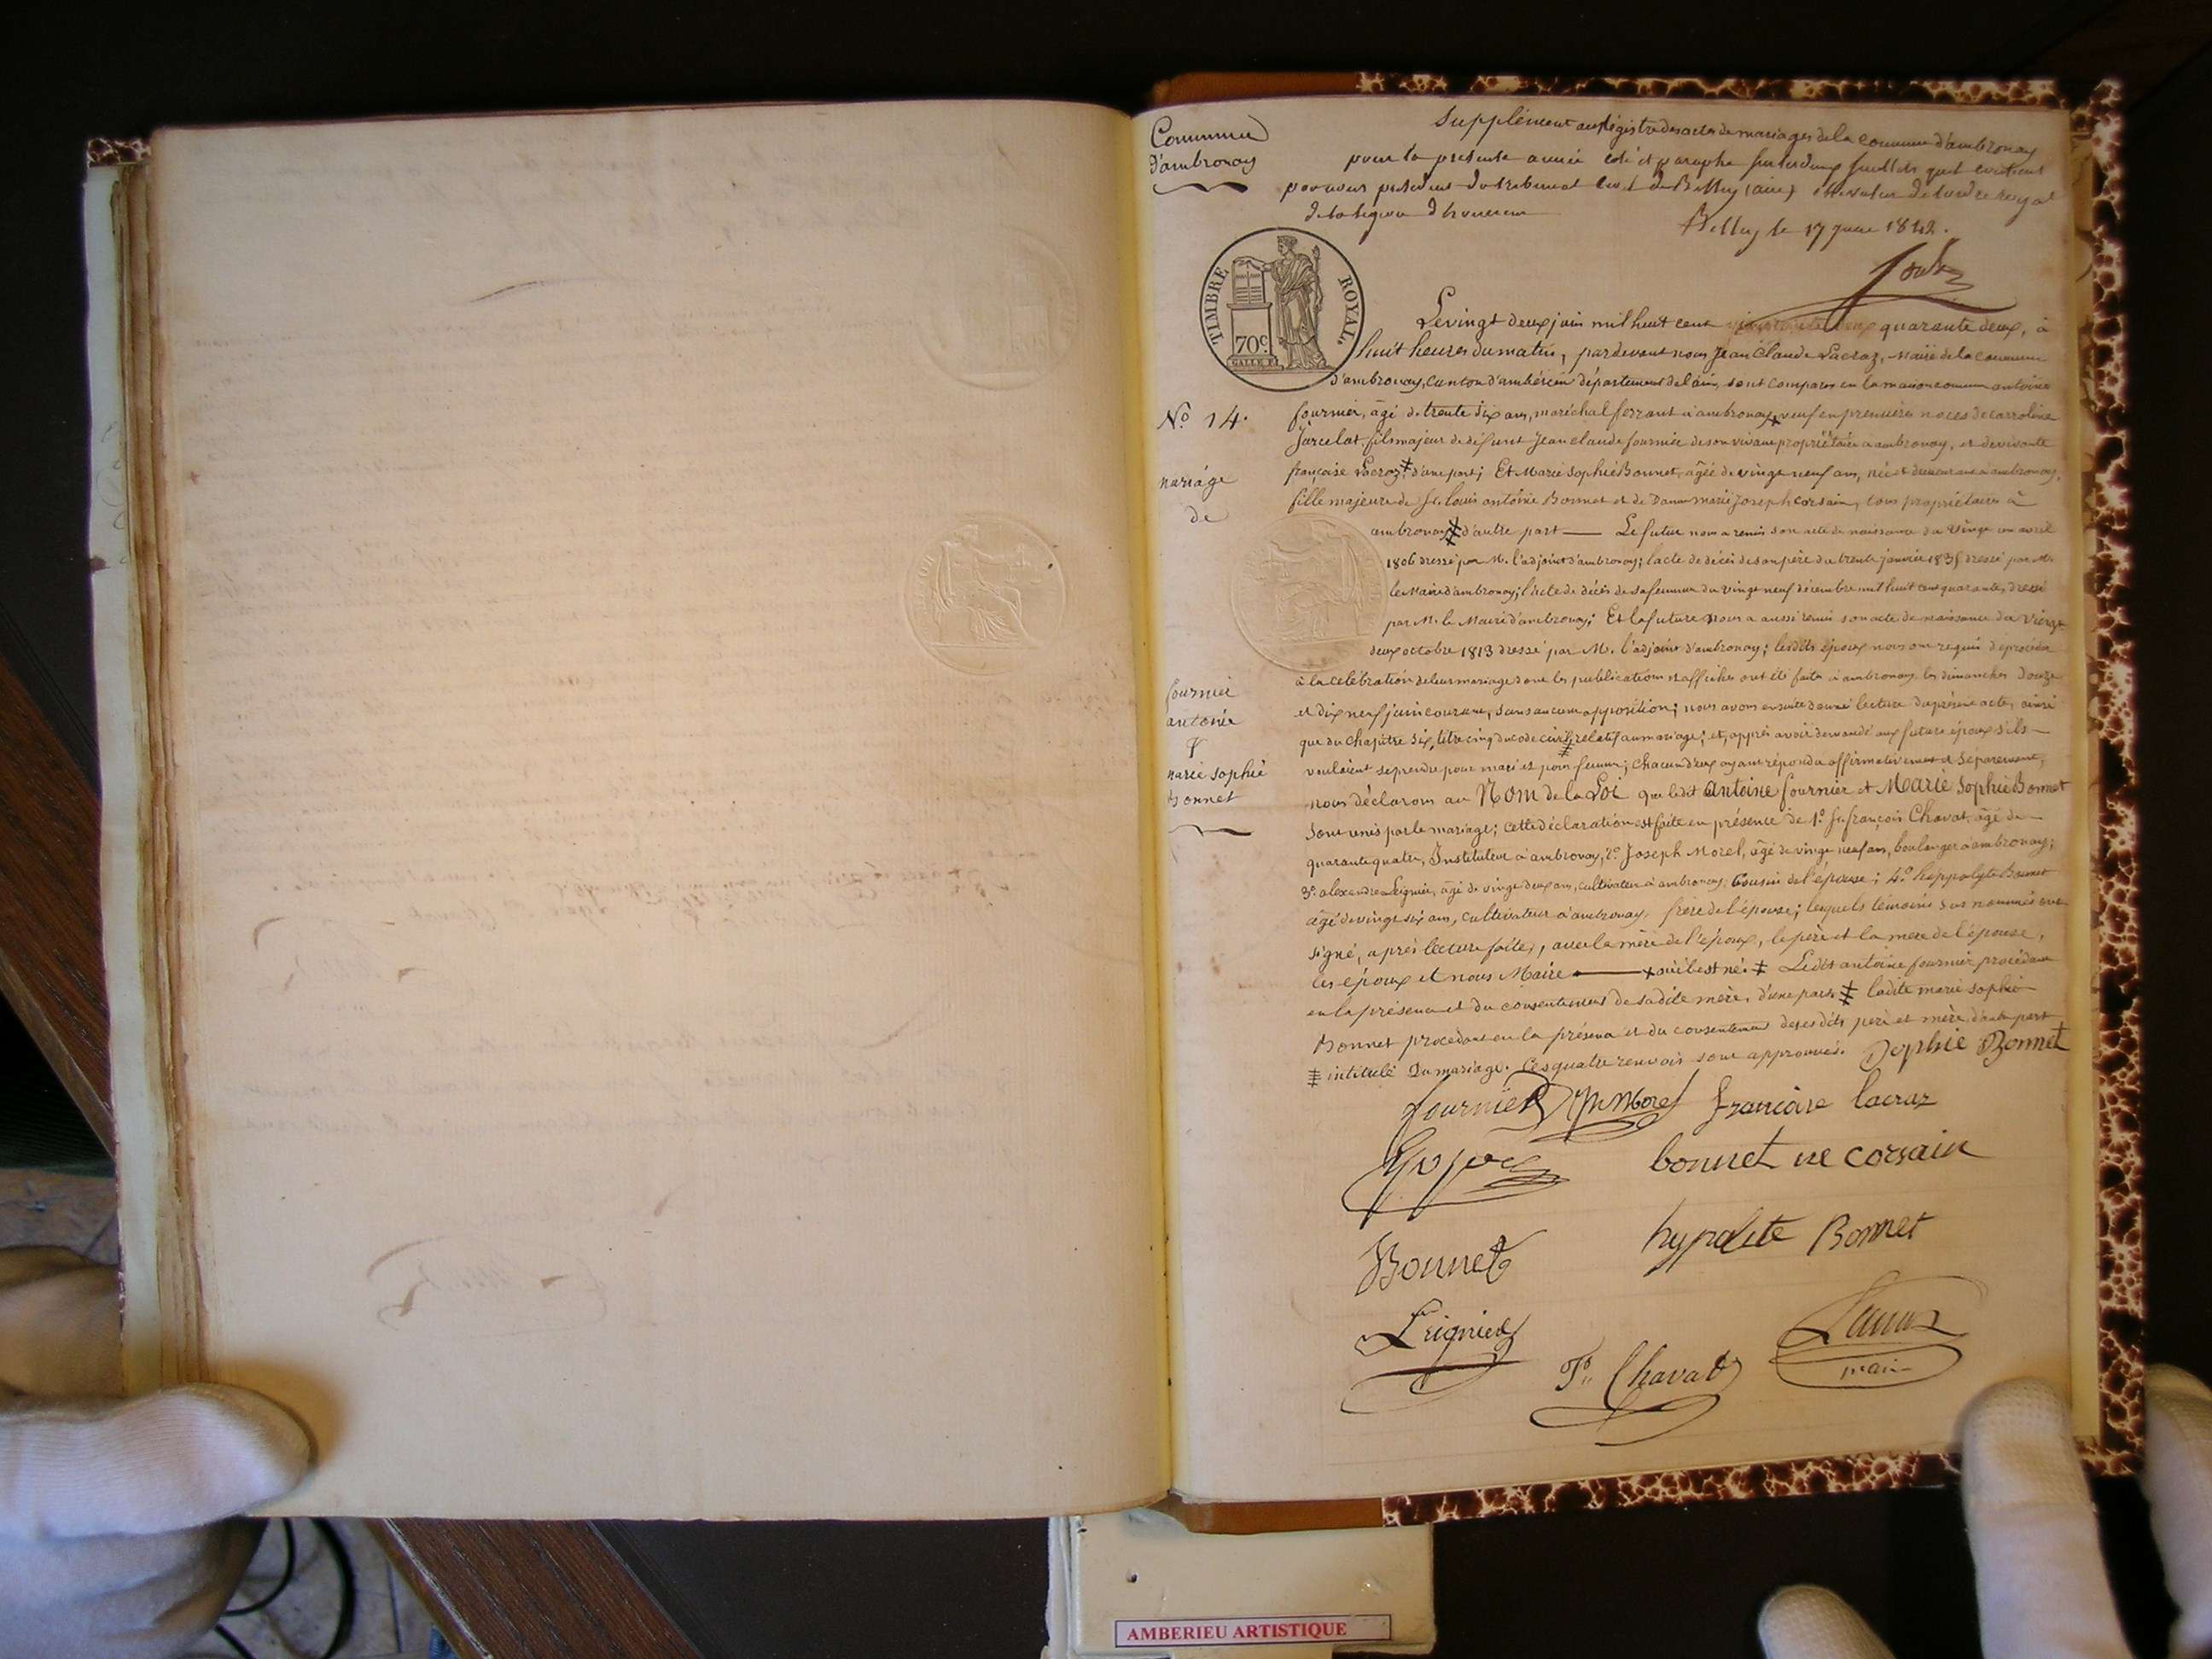 Commune
d'ambronay
Supplément au Régistre des actes de mariages de la commune d'ambronay
pour la présente année coté et paraphé sur les deux feuillets qu'il contient
par nous président du tribunal civil de Belley (ain) chevalier de l'ordre royal
de la légion d'honneur
Belley le 17 juin 1842.
TIMBRE ROYAL.
70c.
Le vingt deux juin mil huit cent quarante deux, à
huit heures du matin, pardevant nous Jean Claude Lacroz, Maire de la commune
d'ambronay, canton d'ambérieu département de l'ain, sont comparus en la maison commune antoine
No. 14.
fournier, âgé de trente six ans, maréchal ferrant à ambronay, ✗ veuf en premières noces de carroline
Jarcelat fils majeur de défunt Jean claude fournier de son vivant propriétaire à ambronay, et de vivante
françoise Lacroz ‡ d'une part; Et Marie Sophie Bonnet, âgée de vingt neuf ans, née et demeurant à ambronay,
mariage
de
fille majeure de Sr. Louis antoine Bonnet et de Dame marie Joseph corsain, tous propriétaires à
ambronay, d'autre part — Le futur nous a remis son acte de naissance du vingt un avril
1806 dressé par M. l'adjoint d'ambronay; l'acte de décès de son père du trente janvier dressé par M.
le Maire d'ambronay; l'acte de décès de sa femme du vingt neuf décembre mil huit cent quarante, dressé
par M. le Maire d'ambronay; Et la future nous a aussi remis son acte de naissance du vingt
deux octobre 1813 dressé par M. l'adjoint d'ambronay; lesdits époux nous ont requis de procéder
à la célébration de leur mariage dont les publications et affiches ont été faites à ambronay les dimanches douze
fournier
antoine
&
marie sophie
bonnet
et dix neuf juin courant, sans aucune opposition; nous avons ensuite donné lecture du présent acte, ainsi
que du chapitre six, titre cinq du code civil, relatif au mariage; et, après avoir demandé aux futurs époux s'ils —
voulaient se prendre pour mari et pour femme; chacun d'eux ayant répondu affirmativement et séparément,
nous déclarons au Nom de la Loi que ledit Antoine fournier et Marie Sophie Bonnet
sont unis par le mariage; cette déclaration est faite en présence de 1o. Sr. françois Chavat, âgé de —
quarante quatre, Instituteur à ambronay, 2o. Joseph Morel, âgé de vingt neuf ans, boulanger à ambronay;
3o. alexandre Leignier, âgé de vingt deux ans, cultivateur à ambronay, Cousin de l'épouse; 4o. hippolyte Bonnet
âgé de vingt six ans, cultivateur à ambronay, frère de l'épouse; lesquels témoins sus nommés ont
signé, après lecture faite, avec la mère de l'époux, le père et la mère de l'épouse,
les époux et nous Maire — ✗ où il est né. ‡ Ledit antoine fournier procédant
en la présence et du consentement de sadite mère, d'une part. ladite marie sophie
Bonnet procédant en la présence et du consentement de ses dits père et mère, d'autre part
intitulé du mariage. Ces quatre renvois sont approuvés. Sophie Bonnet
fournier Jh Morel françoise lacroz
bonnet né corsain
Bonnet
hypolite Bonnet
Leignier
Fs. Chavat
Lacroz
maire
AMBERIEU ARTISTIQUE